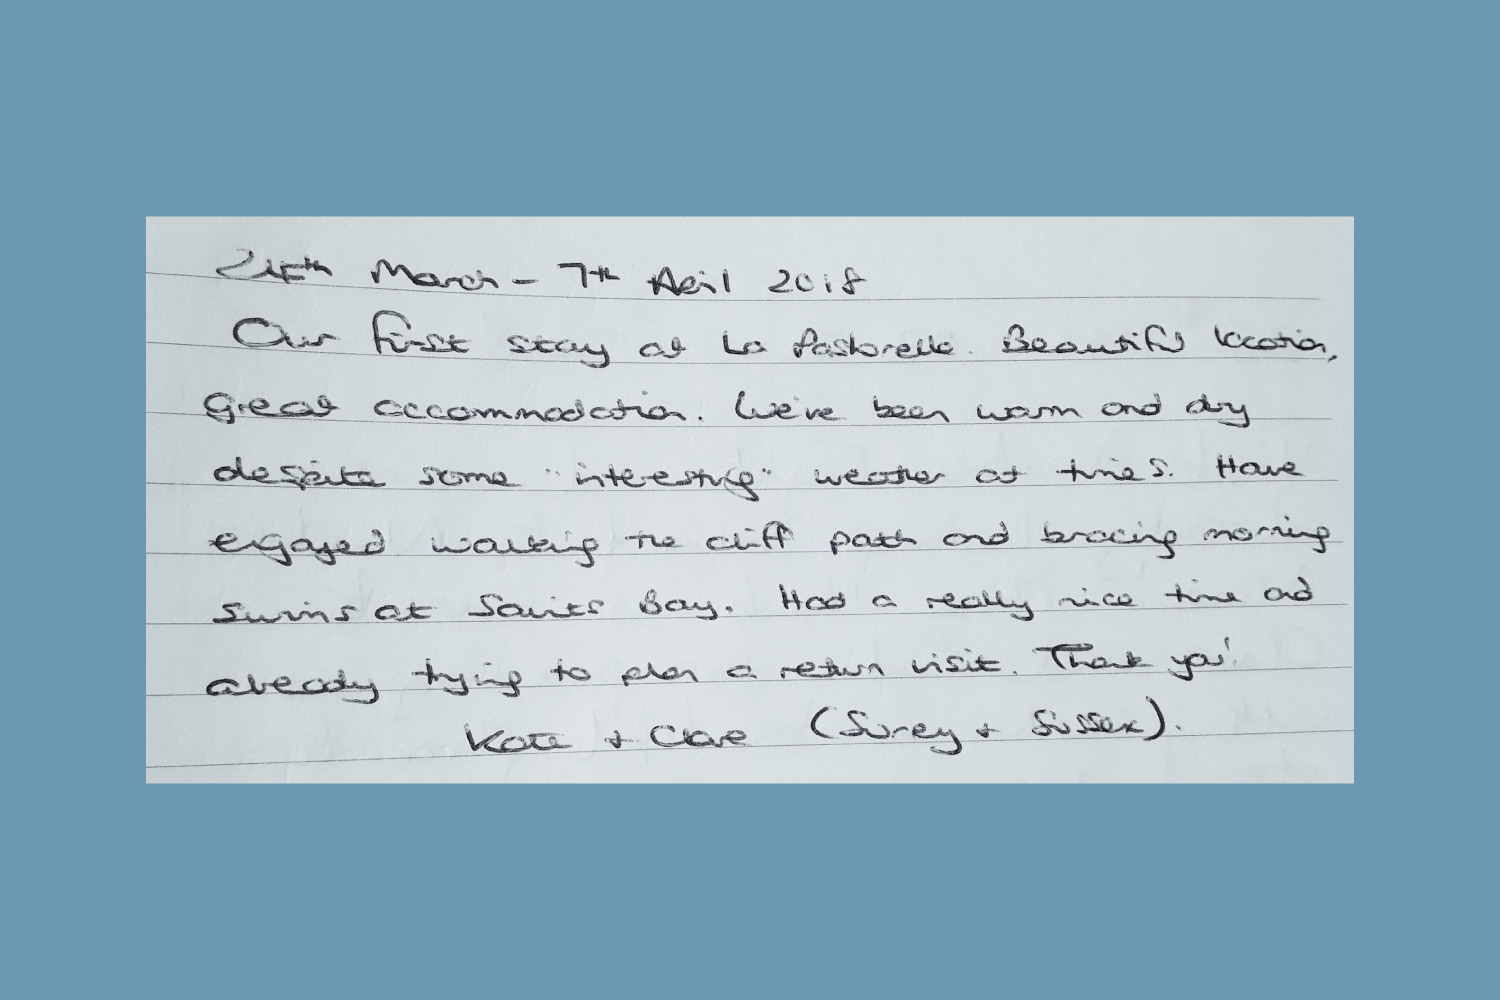 24th March - 7th April 2018
Our first stay at La Pastorelle. Beautiful location,
great accommodation. We've been warm and dry
despite some "interesting" weather at times. Have
enjoyed walking the cliff path and bracing morning
swims at Saints Bay. Had a really nice time and
already trying to plan a return visit. Thank you!
Kate + Clare (Surrey + Sussex).